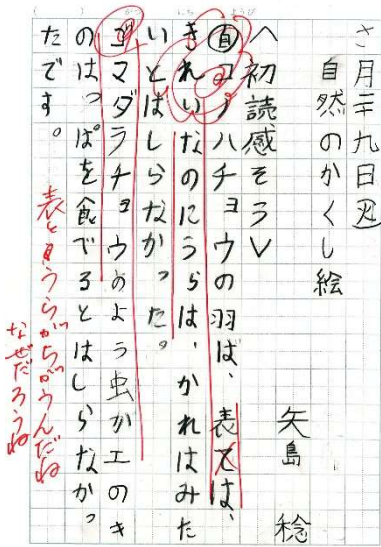 さ月二十九日(火)
自然のかくし絵
矢島 稔
〈初読感そう〉
コノハチョウの羽ば、表では、
きれいなのにうらは、かれはみた
いとはしらなかった。
ゴマダラチョウのよう虫がエのき
のはっぱを食でるとはしらなかっ
たです。
表とうらがちがうんだね
なぜだろうね